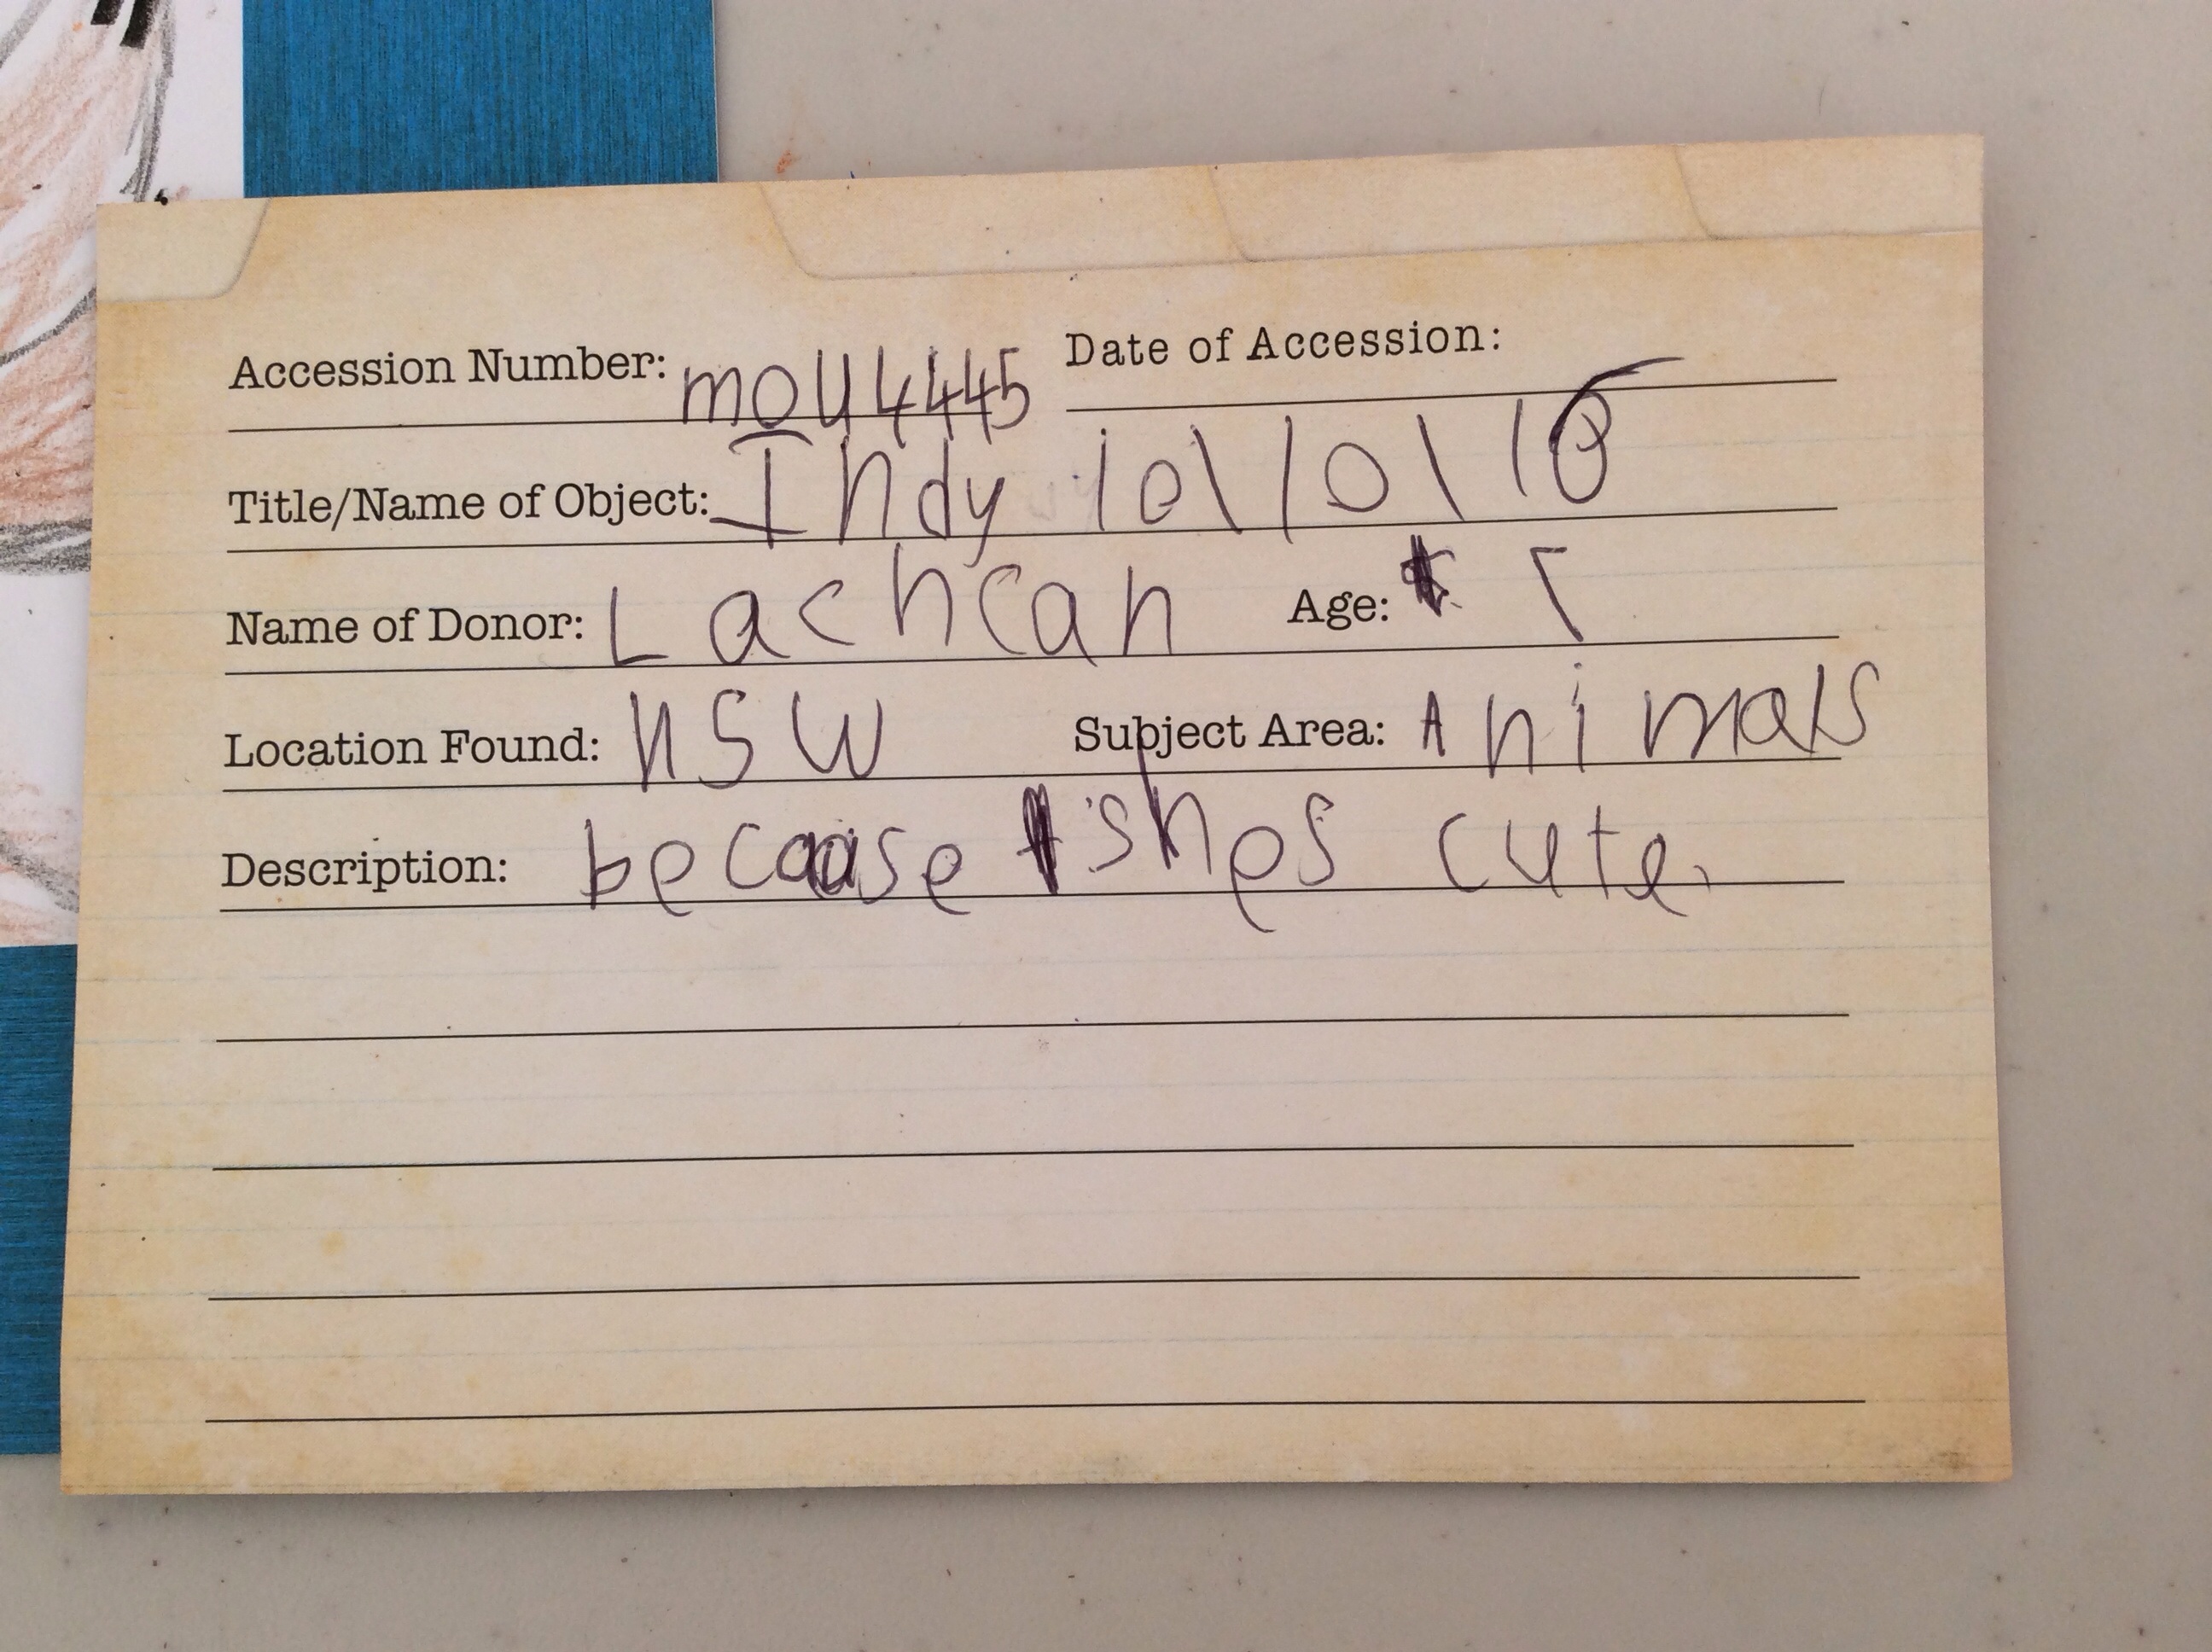 Accession Number: mou4445 Date of Accession:
Title/Name of Object: Indy 10\10\18
Name of Donor: Lachlan Age: 7
Location Found: NSW Subject Area: Animals
Description: because shes cute.